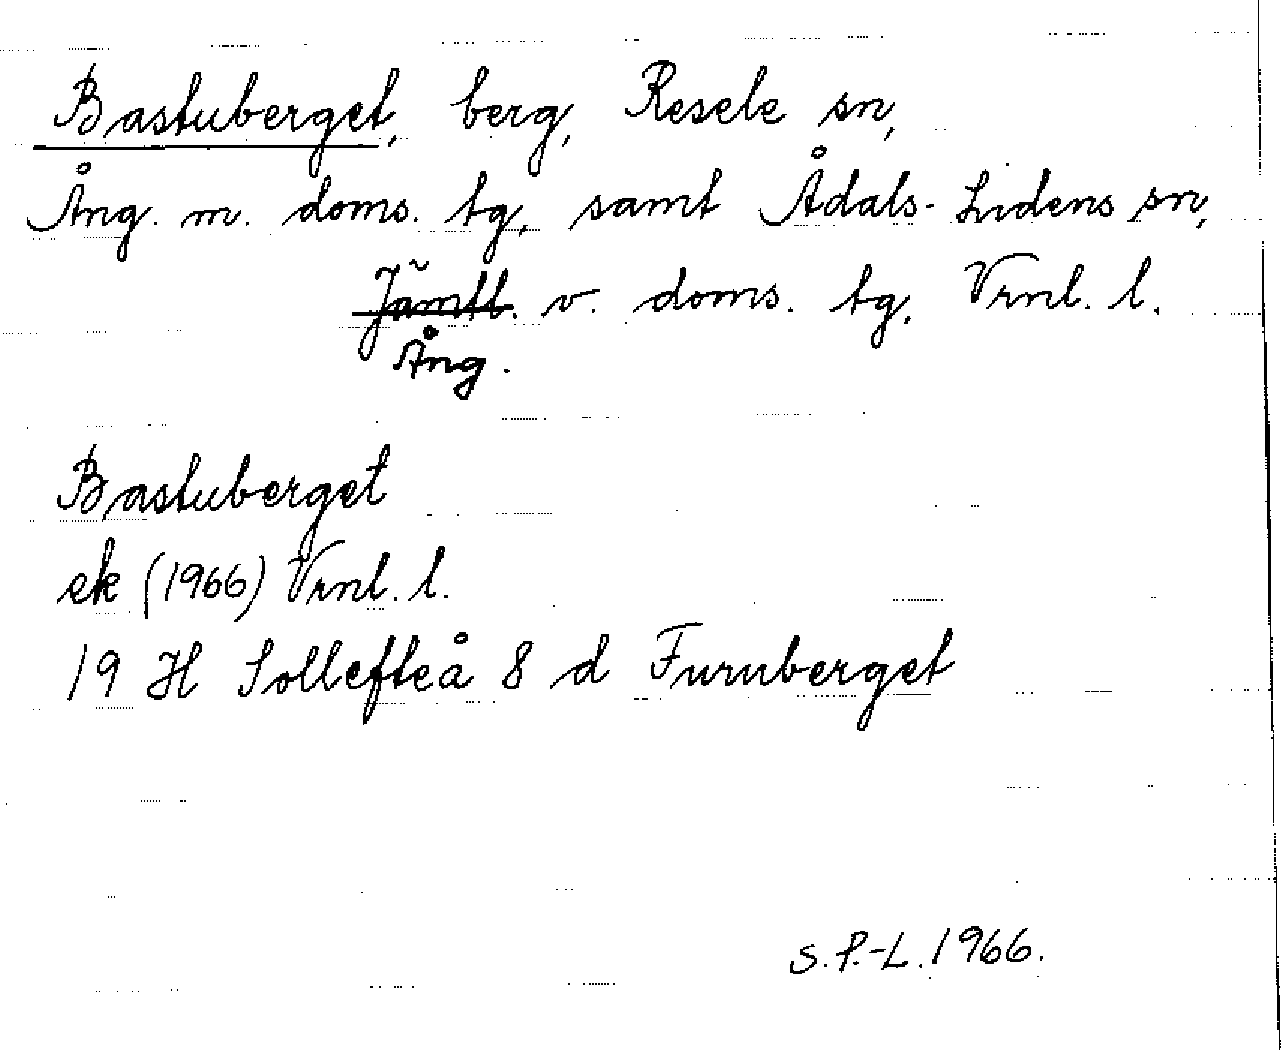 Bastuberget, berg, Resele sn,
Ång. m. doms. tg, samt Ådals-Lidens sn,
Jämtl. v. doms. tg, Vrnl. l.
Ång.
Bastuberget
ek (1966) Vrnl. l.
19 H Sollefteå 8 d Furuberget
S.P.-L. 1966.